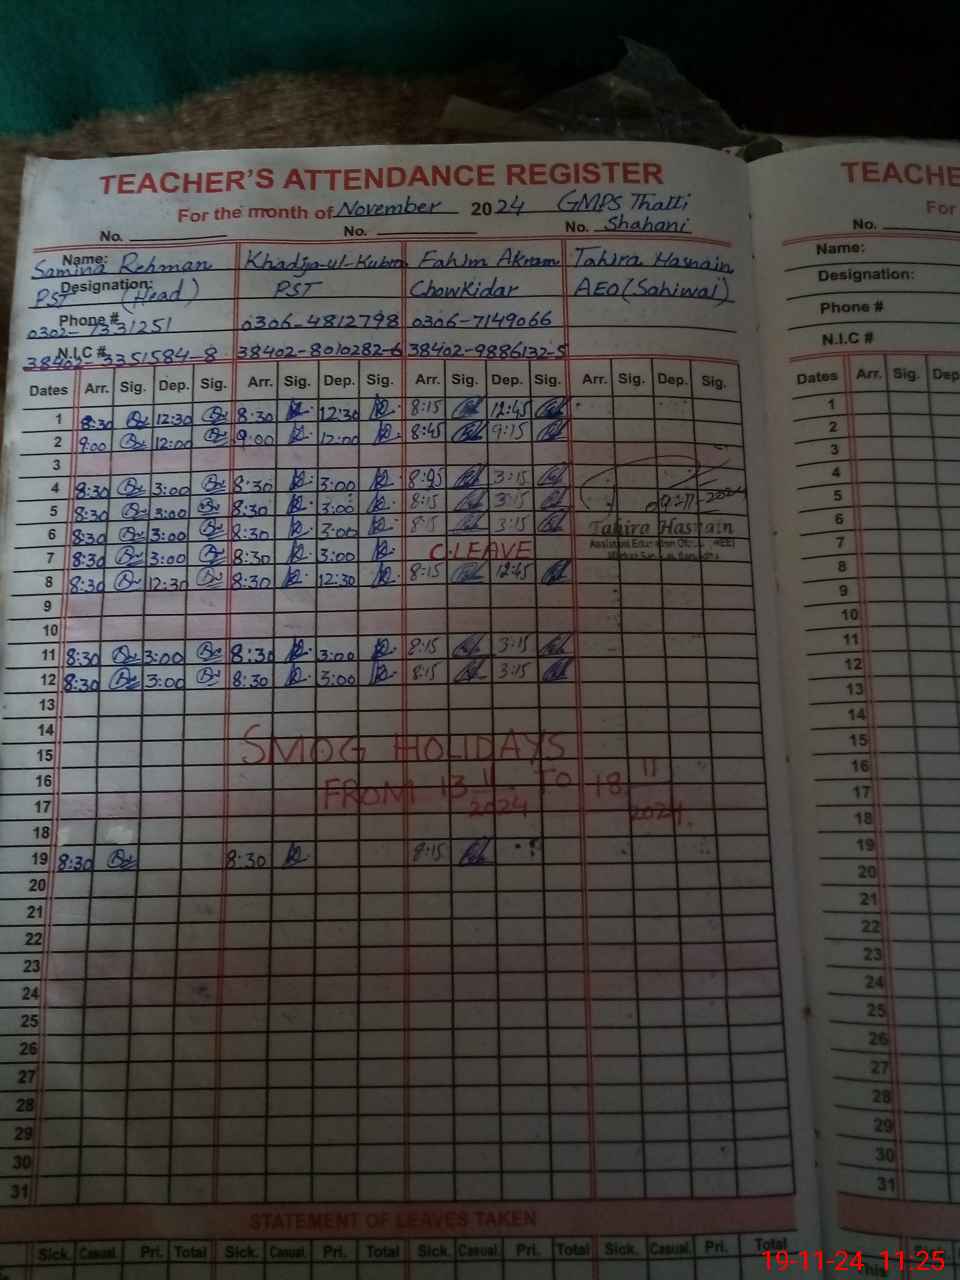 TEACHER'S ATTENDANCE REGISTER
For the month of November 2024 GMPS Thatti
No. No. No. Shahani
Name: Samina Rehman Khadija-ul-Kubra Fahim Akram Tahira Hasnain
Designation: PST (Head) PST Chowkidar AEO (Sahiwal)
Phone # 0302-7331251 0306-4812798 0306-7149066
N.I.C # 38402-3351584-8 38402-8010282-6 38402-9886132-5
Dates Arr. Sig. Dep. Sig. Arr. Sig. Dep. Sig. Arr. Sig. Dep. Sig. Arr. Sig. Dep. Sig.
1 8:30 12:30 8:30 12:30 8:15 12:45
2 9:00 12:00 9:00 12:00 8:45 9:15
3
4 8:30 3:00 8:30 3:00 3:15
5 8:30 3:00 8:30 3:00 8:15 3:15
6 8:30 3:00 8:30 3:00 8:15 3:15 Tahira Hasnain
7 8:30 3:00 8:30 3:00 C.LEAVE
8 8:30 12:30 8:30 12:30 8:15 12:45
9
10
11 8:30 3:00 8:30 3:00 8:15 3:15
12 8:30 3:00 8:30 3:00 8:15 3:15
13
14
15 SMOG HOLIDAYS
16 FROM 13 11 TO 18 11
17 2024 2024.
18
19 8:30 8:30 8:15
20
21
22
23
24
25
26
27
28
29
30
31
STATEMENT OF LEAVES TAKEN
Sick. Casual. Pri. Total Sick. Casual. Pri. Total Sick. Casual. Pri. Total Sick. Casual. Pri. Total
TEACHE
For
No.
Name:
Designation:
Phone #
N.I.C #
Dates Arr. Sig. Dep
1
2
3
4
5
6
7
8
9
10
11
12
13
14
15
16
17
18
19
20
21
22
23
24
25
26
27
28
29
30
31
This
19-11-24 11:25